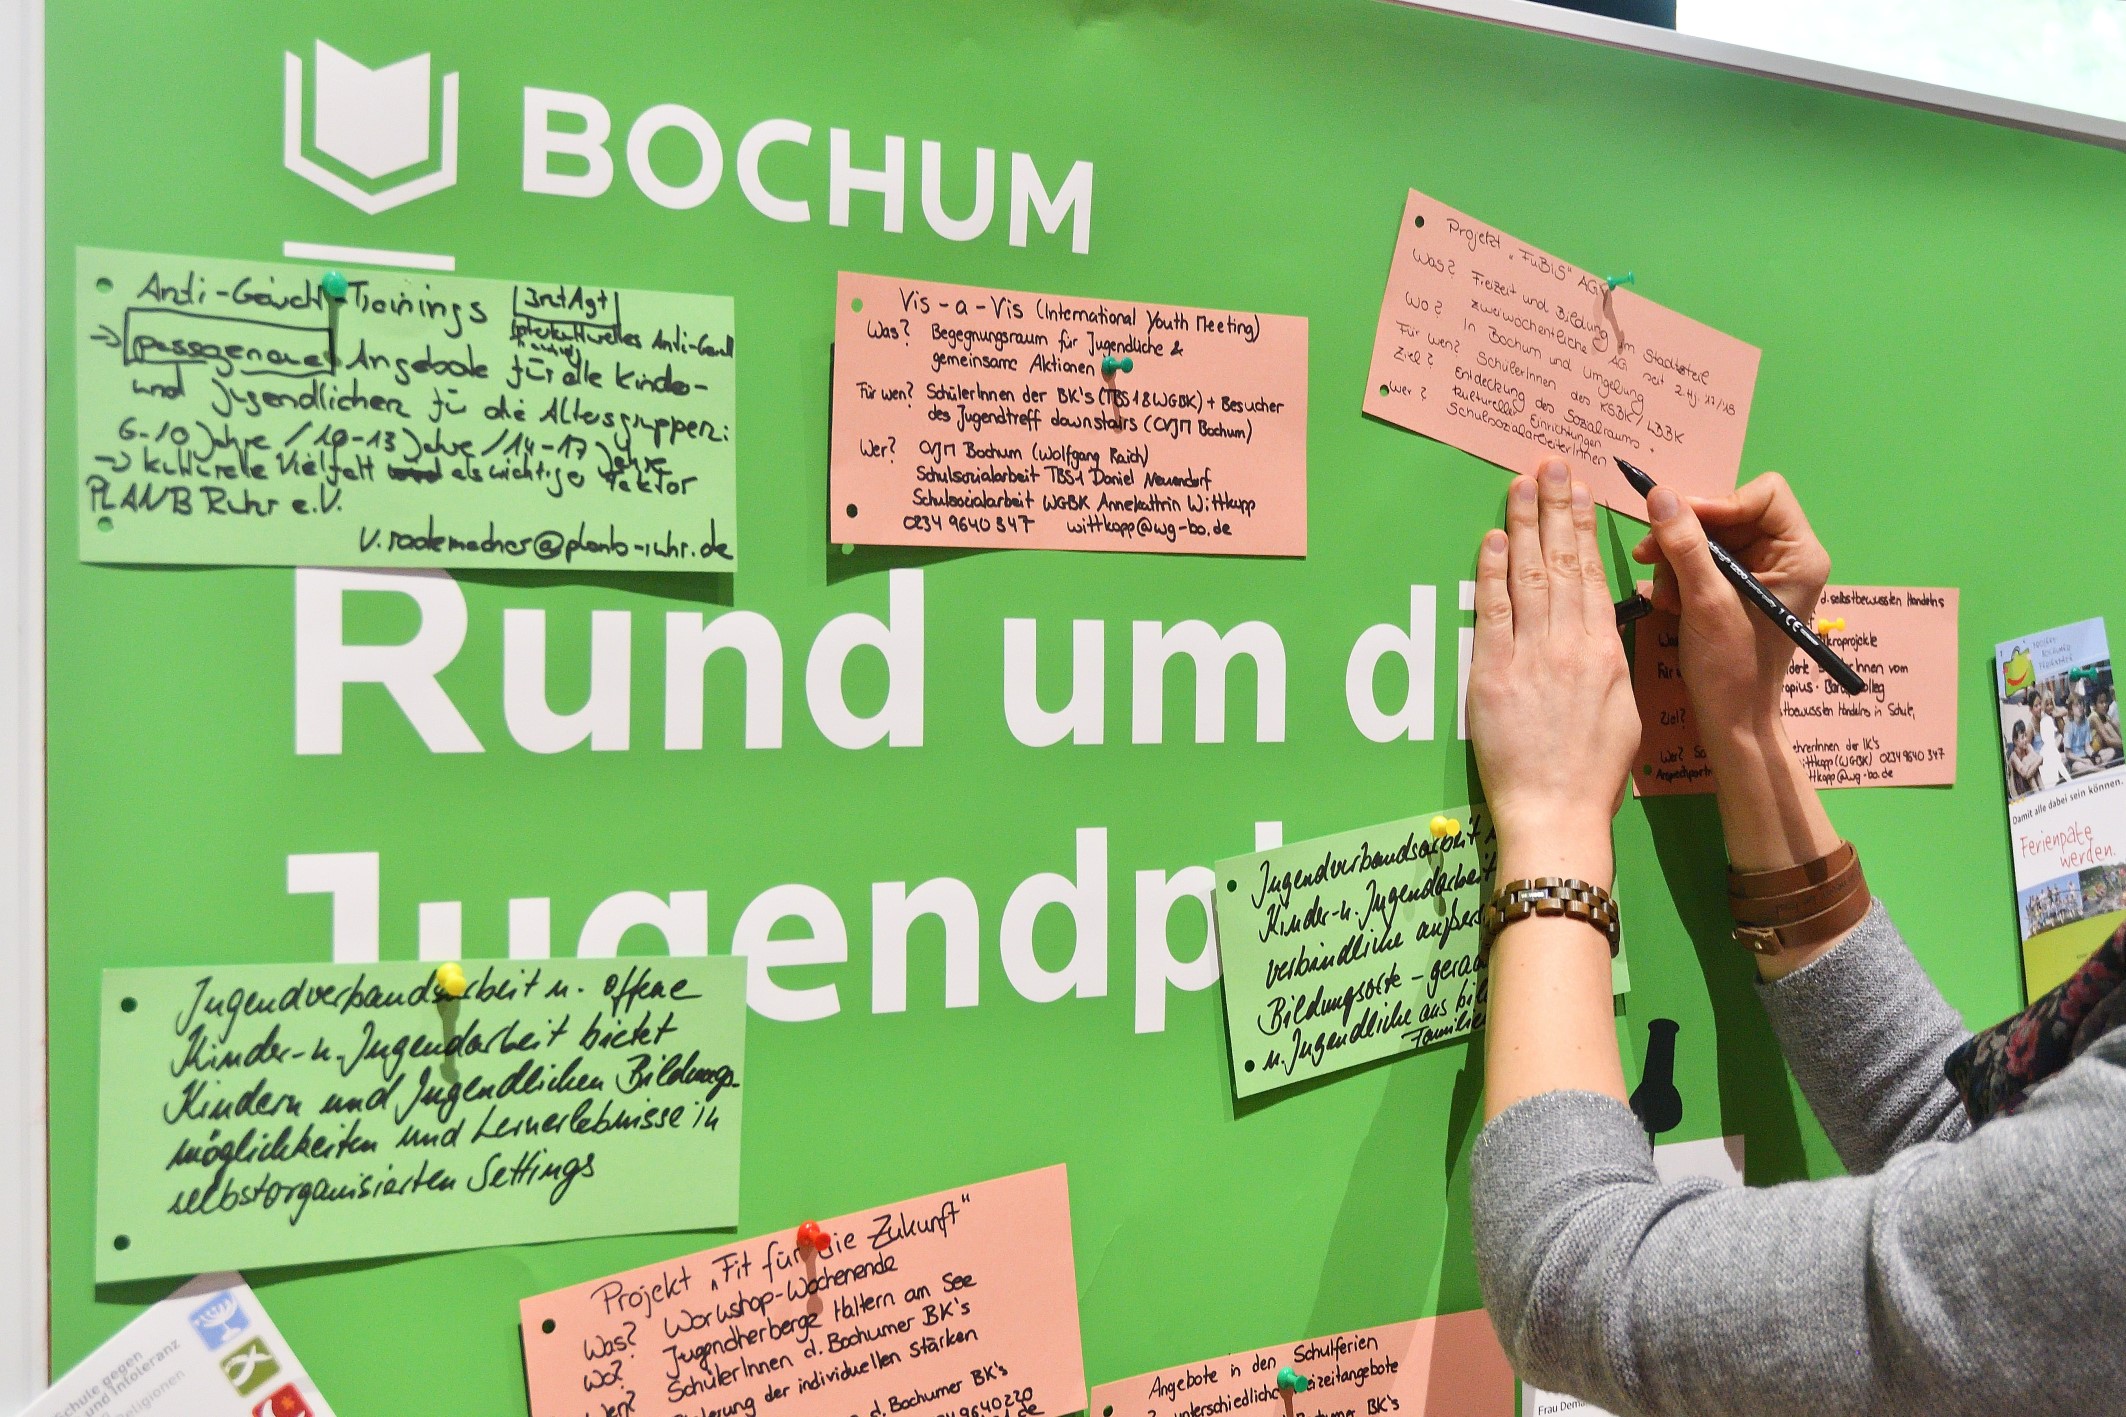 BOCHUM
Anti-Gewalt-Trainings
→ passgenaue Angebote für alle Kinder-
und Jugendlichen für die Altersgruppen:
6-10 Jahre / 10-13 Jahre / 14-17 Jahre
→ kulturelle Vielfalt als wichtiger Faktor
PLANB Ruhr e.V.
v.rademacher@planb-ruhr.de
Vis-a-Vis (International Youth Meeting)
Was? Begegnungsraum für Jugendliche &
gemeinsame Aktionen
Für wen? SchülerInnen der BK's (TBS1 & WGBK) + Besucher
des Jugendtreff downstairs (CVJM Bochum)
Wer? CVJM Bochum (Wolfgang Raich)
Schulsozialarbeit TBS1 Daniel Neuendorf
Schulsozialarbeit WGBK Annekathrin Wittkopp
0234 9640 347 wittkopp@wg-bo.de
Projekt "FuBiS" AG
Was? Freizeit und Bildung im Stadtteil
zweiwöchentliche AG seit 2.Hj. 17/18
Wo? In Bochum und Umgebung
Für wen? SchülerInnen des KSBK / LBBK
Ziel? Entdeckung des Sozialraums +
kultureller Einrichtungen
Wer? SchulsozialarbeiterInnen
Rund um di
Jugendp
d. selbstbewussten Handelns
kroprojekte
Innen vom
olleg
tbewussten Handelns in Schule,
Ziel?
ehrerInnen der IK's
Wer? So
ittkopp (WGBK) 0234 9640 347
Ansprechpartn
ttkopp@wg-bo.de
Damit alle dabei sein können.
Ferienpate
werden.
Jugendverbandsarbeit
Kinder- u. Jugendarbeit
verbindliche außers
Bildungsorte - gerad
u. Jugendliche aus bil
Familie
Jugendverbandsarbeit u. offene
Kinder- u. Jugendarbeit bietet
Kindern und Jugendlichen Bildungs-
möglichkeiten und Lernerlebnisse in
selbstorganisierten Settings
Projekt „Fit für die Zukunft"
Was? Workshop-Wochenende
Wo? Jugendherberge Haltern am See
Wen? SchülerInnen d. Bochumer BK's
erung der individuellen Stärken
d. Bochumer BK's
9640220
Angebote in den Schulferien
unterschiedliche Freizeitangebote
BK's
Schule gegen
und Intoleranz
Religionen
Frau Dem